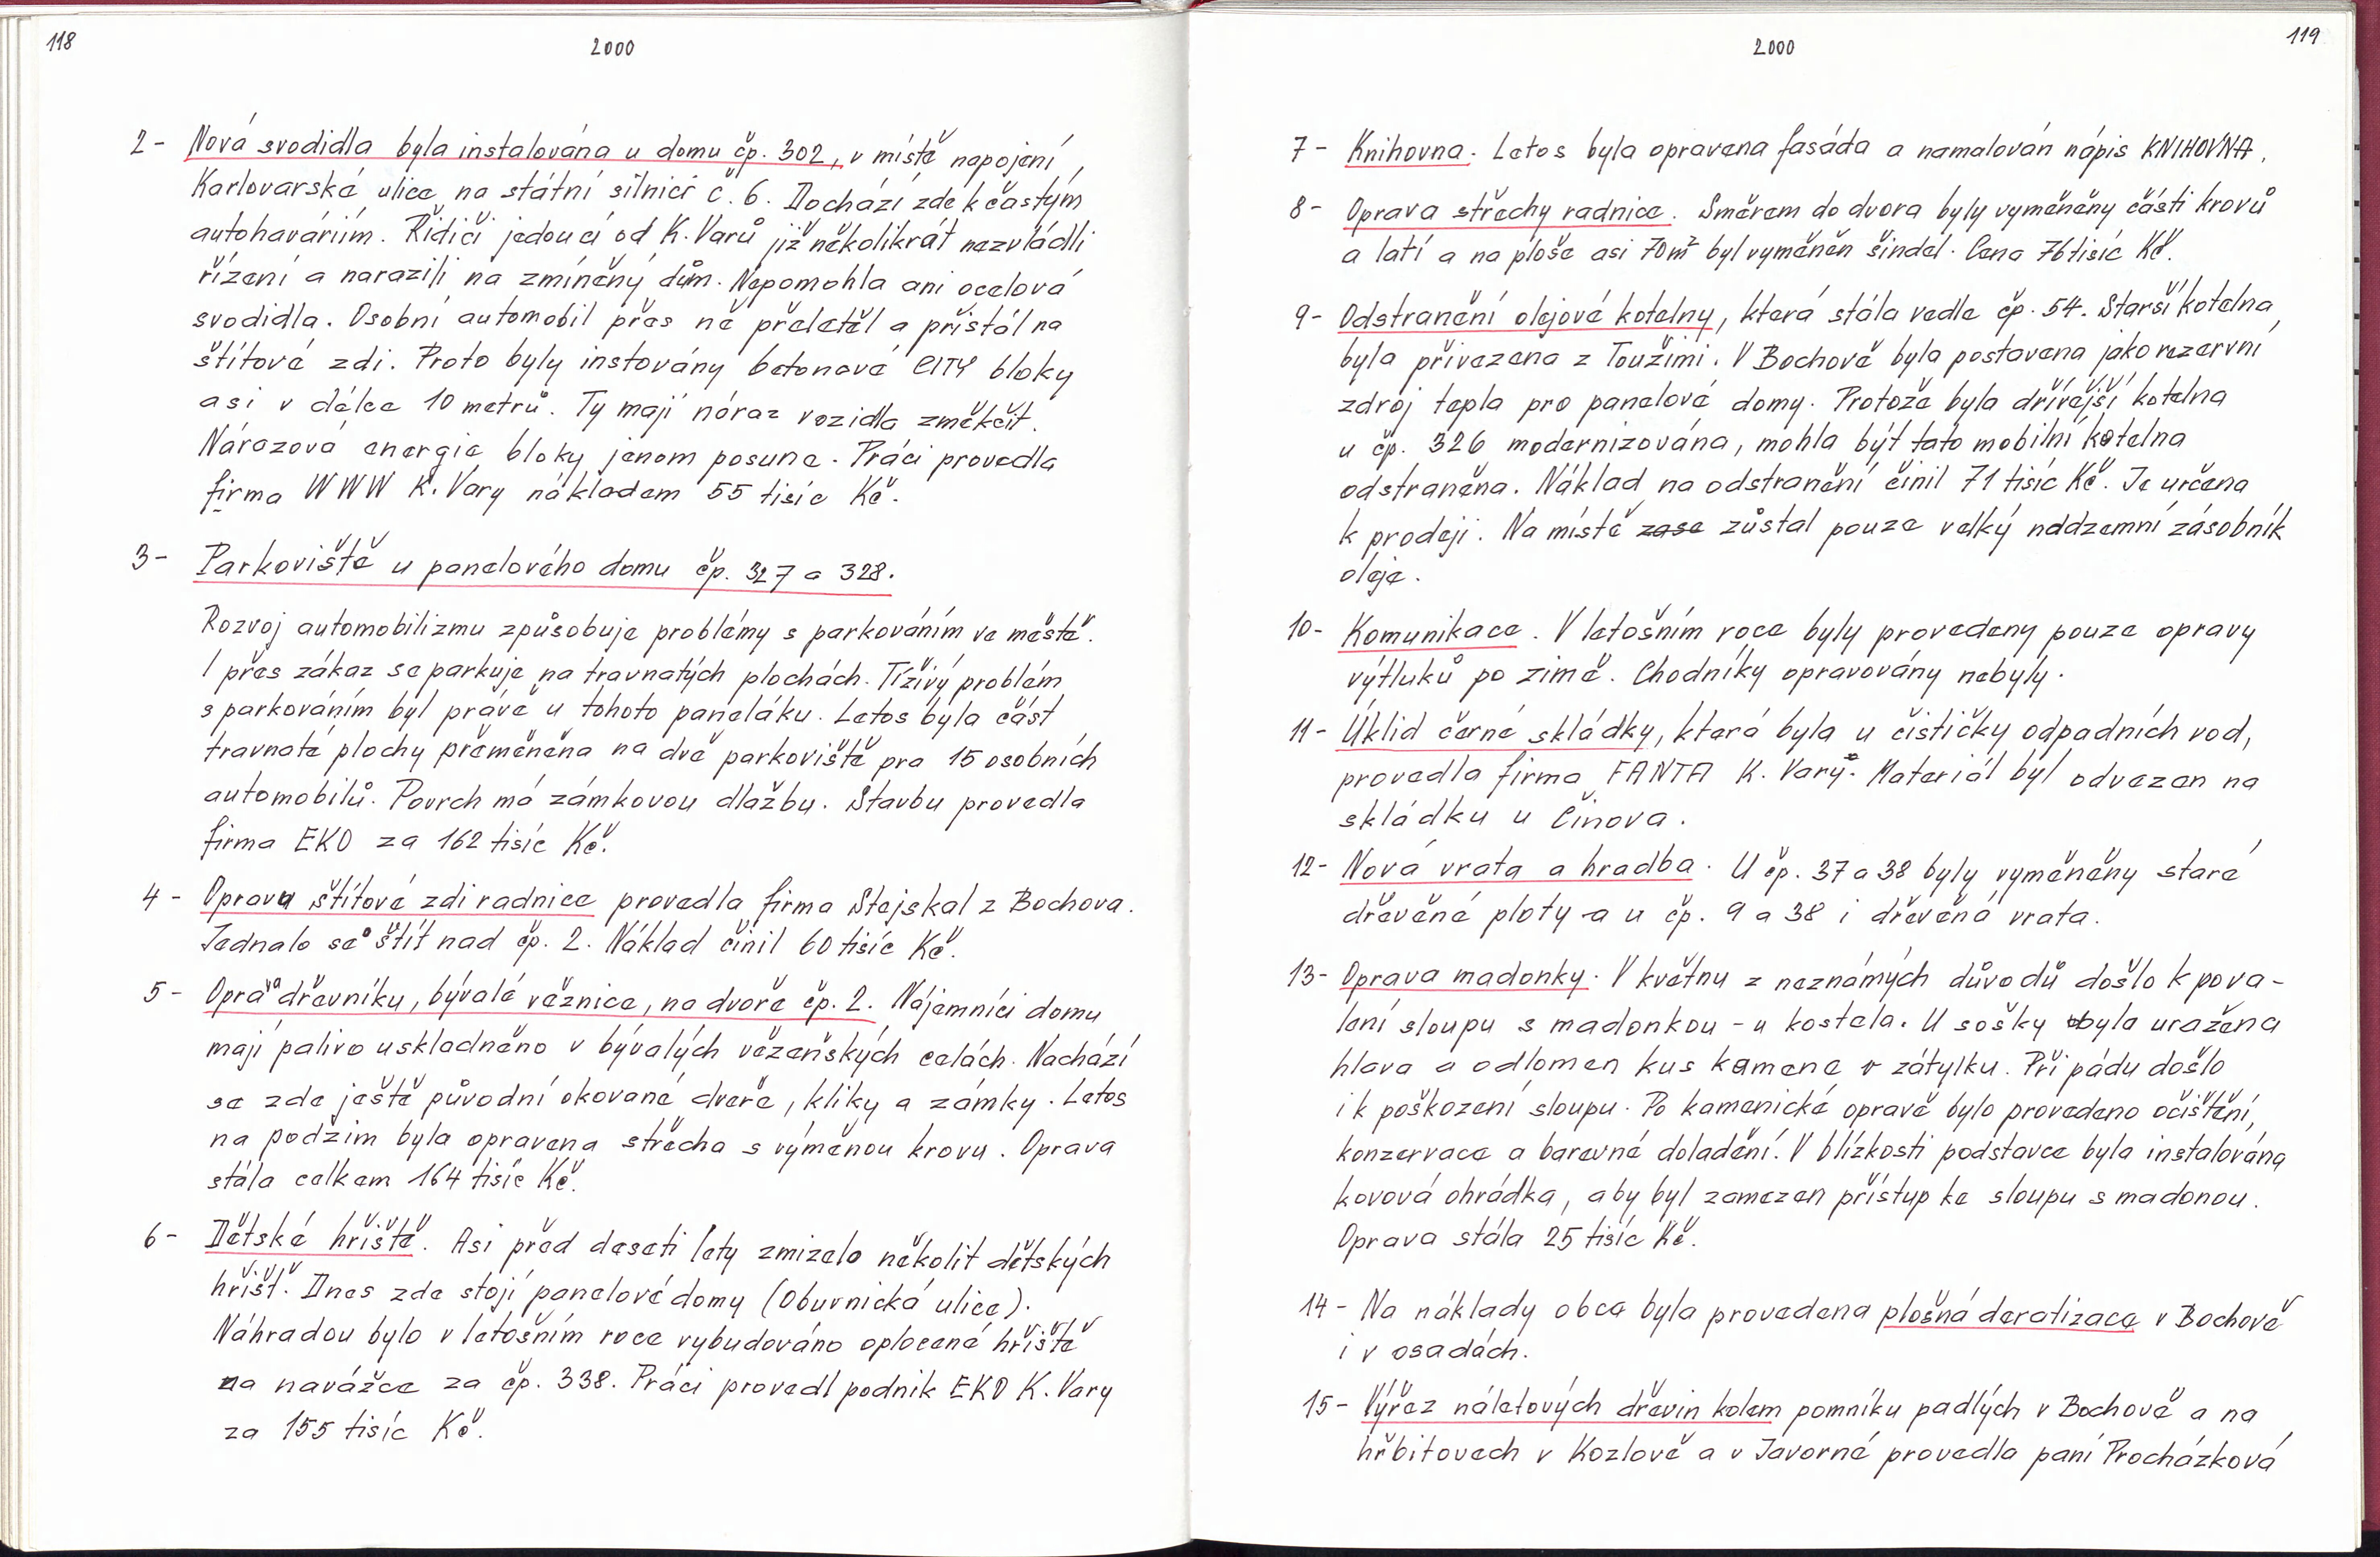 118
2000
2- Nová svodidla byla instalována u domu čp. 302, v místě napojení
Karlovarské ulice na státní silnici č. 6. Dochází zde k častým
autohaváriím. Řidiči jedoucí od K. Varů již několikrát nezvládli
řízení a narazili na zmíněný dům. Nepomohla ani ocelová
svodidla. Osobní automobil přes ně přeletěl a přistál na
štítové zdi. Proto byly instovány betonové CITY bloky
asi v délce 10 metrů. Ty mají náraz vozidla změkčit.
Nárazová energie bloky jenom posune. Práci provedla
firma WWW K. Vary nákladem 55 tisíc Kč.
3- Parkoviště u panelového domu čp. 327 a 328.
Rozvoj automobilizmu způsobuje problémy s parkováním ve městě.
I přes zákaz se parkuje na travnatých plochách. Tíživý problém
s parkováním byl právě u tohoto paneláku. Letos byla část
travnaté plochy přeměněna na dvě parkoviště pro 15 osobních
automobilů. Povrch má zámkovou dlažbu. Stavbu provedla
firma EKO za 162 tisíc Kč.
4- Opravu štítové zdi radnice provedla firma Stejskal z Bochova.
Jednalo se o štít nad čp. 2. Náklad činil 60 tisíc Kč.
5- Oprava dřevníku, bývalé věznice, na dvoře čp. 2. Nájemníci domu
mají palivo uskladněno v bývalých vězeňských celách. Nachází
se zde ještě původní okované dveře, kliky a zámky. Letos
na podzim byla opravena střecha s výměnou krovu. Oprava
stála celkem 164 tisíc Kč.
6- Dětské hřiště. Asi před deseti lety zmizelo několit dětských
hřišť. Dnes zde stojí panelové domy (Obuvnická ulice).
Náhradou bylo v letošním roce vybudováno oplocené hřiště
na navážce za čp. 338. Práci provedl podnik EKO K. Vary
za 155 tisíc Kč.
2000
119
7- Knihovna. Letos byla opravena fasáda a namalován nápis KNIHOVNA.
8- Oprava střechy radnice. Směrem do dvora byly vyměněny části krovů
a latí a na ploše asi 70m² byl vyměněn šindel. Cena 76 tisíc Kč.
9- Odstranění olejové kotelny, která stála vedle čp. 54. Starší kotelna
byla přivezena z Toužimi. V Bochově byla postavena jako rezervní
zdroj tepla pro panelové domy. Protože byla dřívější kotelna
u čp. 326 modernizována, mohla být tato mobilní kotelna
odstraněna. Náklad na odstranění činil 71 tisíc Kč. Je určena
k prodeji. Na místě zase zůstal pouze velký nadzemní zásobník
oleje.
10- Komunikace. V letošním roce byly provedeny pouze opravy
výtluků po zimě. Chodníky opravovány nebyly.
11- Úklid černé skládky, která byla u čističky odpadních vod,
provedla firma FANTA K. Vary. Materiál byl odvezen na
skládku u Činova.
12- Nová vrata a hradba. U čp. 37 a 38 byly vyměněny staré
dřevěné ploty a u čp. 9 a 38 i dřevěná vrata.
13- Oprava madonky. V květnu z neznámých důvodů došlo k pova-
lení sloupu s madonkou - u kostela. U sošky byla uražena
hlava a odlomen kus kamene v zátylku. Při pádu došlo
i k poškození sloupu. Po kamenické opravě bylo provedeno očištění,
konzervace a barevné doladění. V blízkosti podstavce byla instalována
kovová ohrádka, aby byl zamezen přístup ke sloupu s madonou.
Oprava stála 25 tisíc Kč.
14- Na náklady obce byla provedena plošná deratizace v Bochově
i v osadách.
15- Výřez náletových dřevin kolem pomníku padlých v Bochově a na
hřbitovech v Kozlově a v Javorné provedla paní Procházková